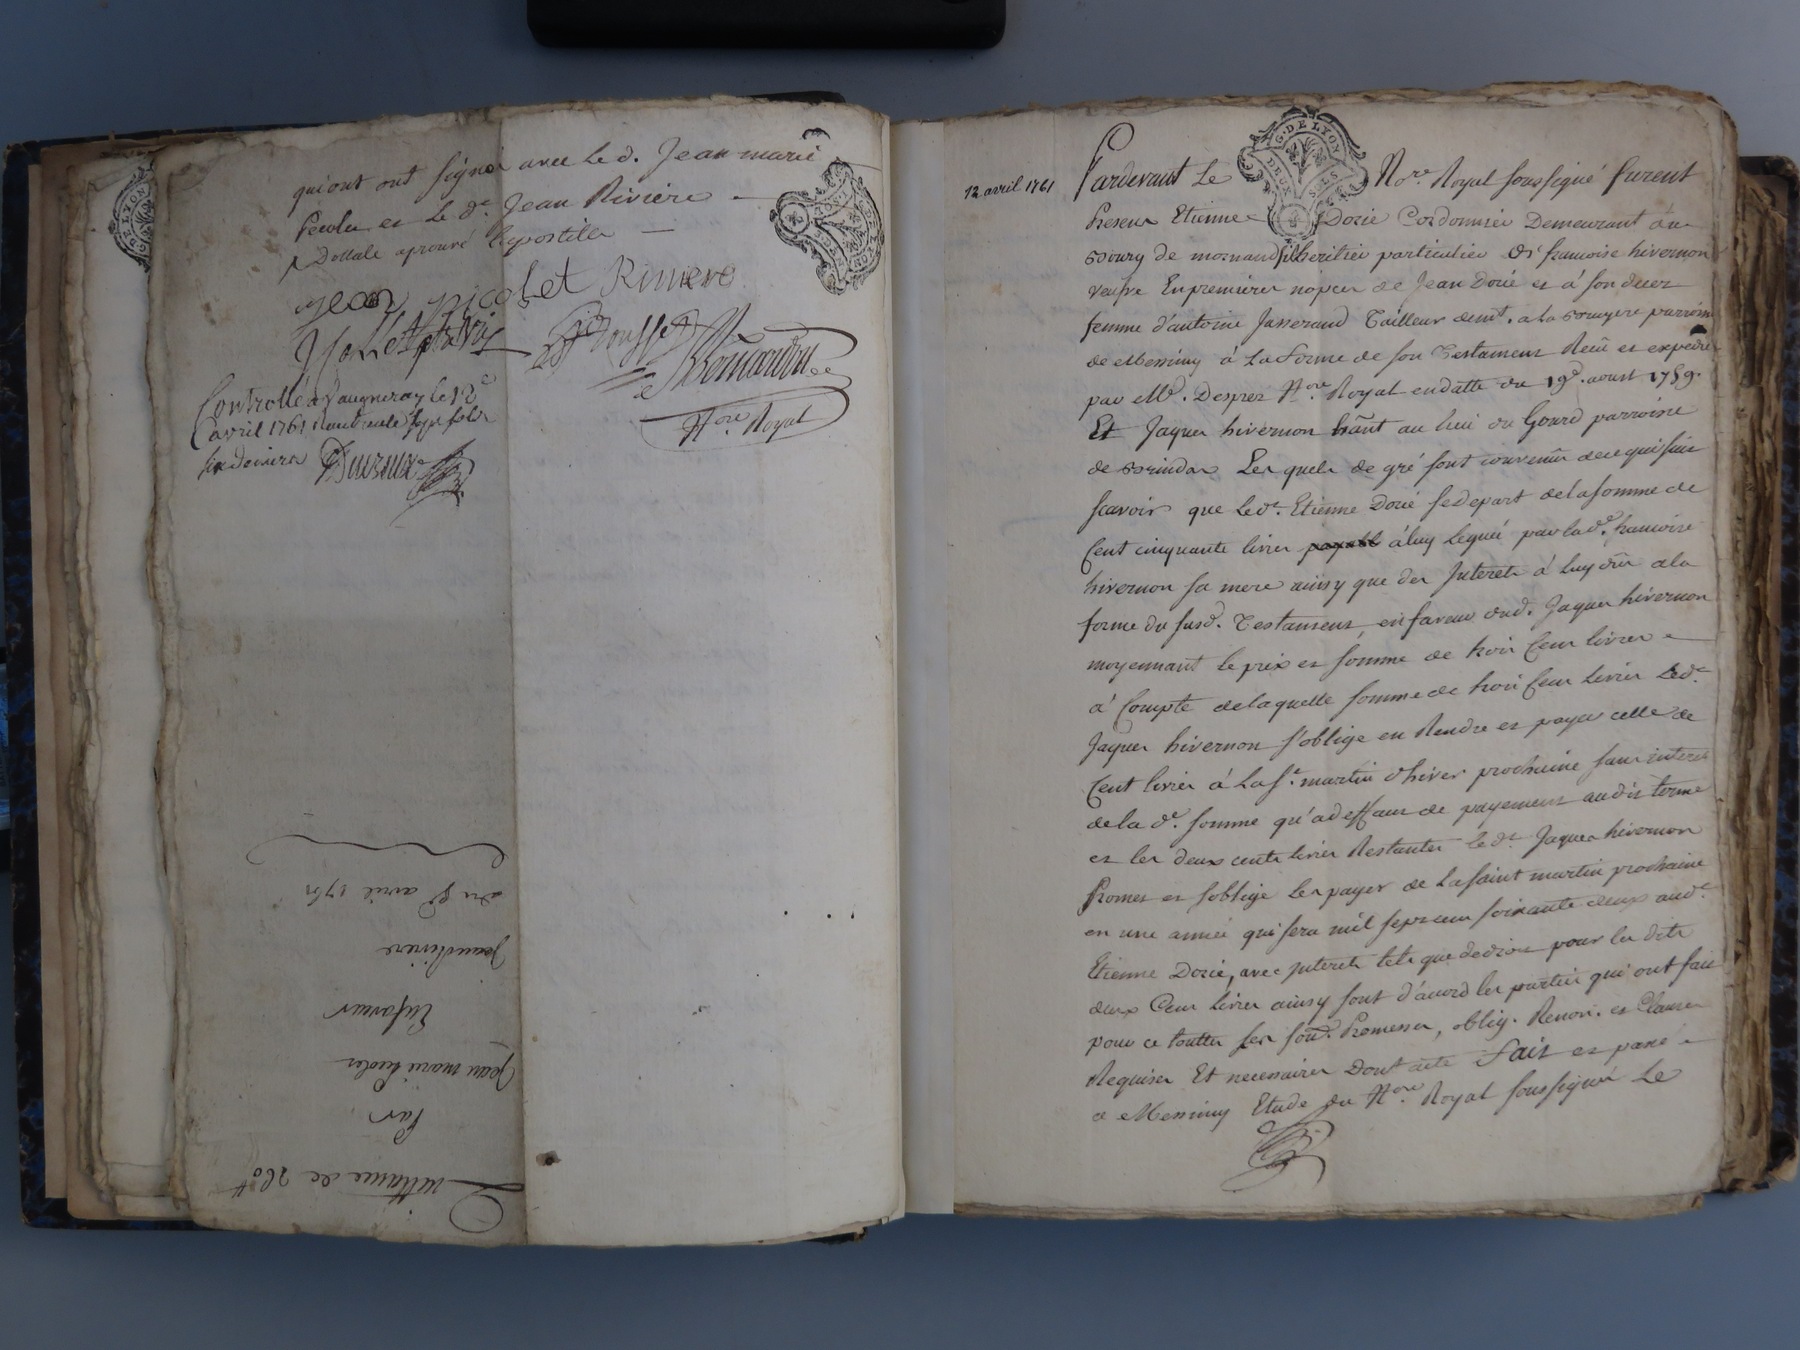 qui ont ont signé avec le d. Jean marie
Picolet et le de. Jean Riviere
Dottale aprouvé l'apostille
jean picolet Riviere
Nore Royal
Controllé a Vaugneray le 12e
avril 1761 Reçut
six deniers
Quittance de 260 ₶
Par
Jean marie Picolet
En faveur
Jean Riviere
du 8e avril 1761
G. DE LYON
DEUX SOLS
12 avril 1761
Pardevant Le Nore. Royal soussigné furent
Presens Etienne Dorié Cordonnier Demeurant au
Bourg de mornand, heritier particulier de francoise hivernon
veufve En premieres nopces de Jean Dorié et á son deces
femme d'antoine Jasserand Tailleur demt. a la Bruyere parroisse
de Messimy á La forme de son Testament Recû et expedié
par Me. Desprez Nore. Royal en datte du 19e. aoust 1759.
Et Jaques hivernon hãnt au lieu du Gourd parroisse
de Brindas Lesquels de gré sont convenus de ce qui suit
scavoir que Le dt. Etienne Dorié se depart de la somme de
Cent cinquante livres payabl á luy Legué par la de. francoise
hivernon sa mere ainsy que des Interets á luy dûs a la
forme du susd. Testament, en faveur dud. Jaques hivernon
moyennant le prix et somme de trois Cent livres
á Compte de laquelle somme de trois Cent livres Le dt.
Jaques hivernon s'oblige en Rendre et payer celle de
Cent livres á La St. martin d'hiver prochaine sans interets
de la de. somme qu'a deffaut de payement audit terme
et les deux cents livres Restantes le dt. Jaques hivernon
Promet et s'oblige les payer de La saint martin prochaine
en une année qui sera mil sept cent soixante deux aud.
Etienne Dorié, avec interets tels que de droit pour les dits
deux Cent livres ainsy sont d'acord les parties qui ont fait
pour ce touttes les soud. Promesses, oblig. Renon. et Clauses
Requises Et necessaires Dont acte fait et passé
a Messimy Etude du Nore. Royal soussigné Le